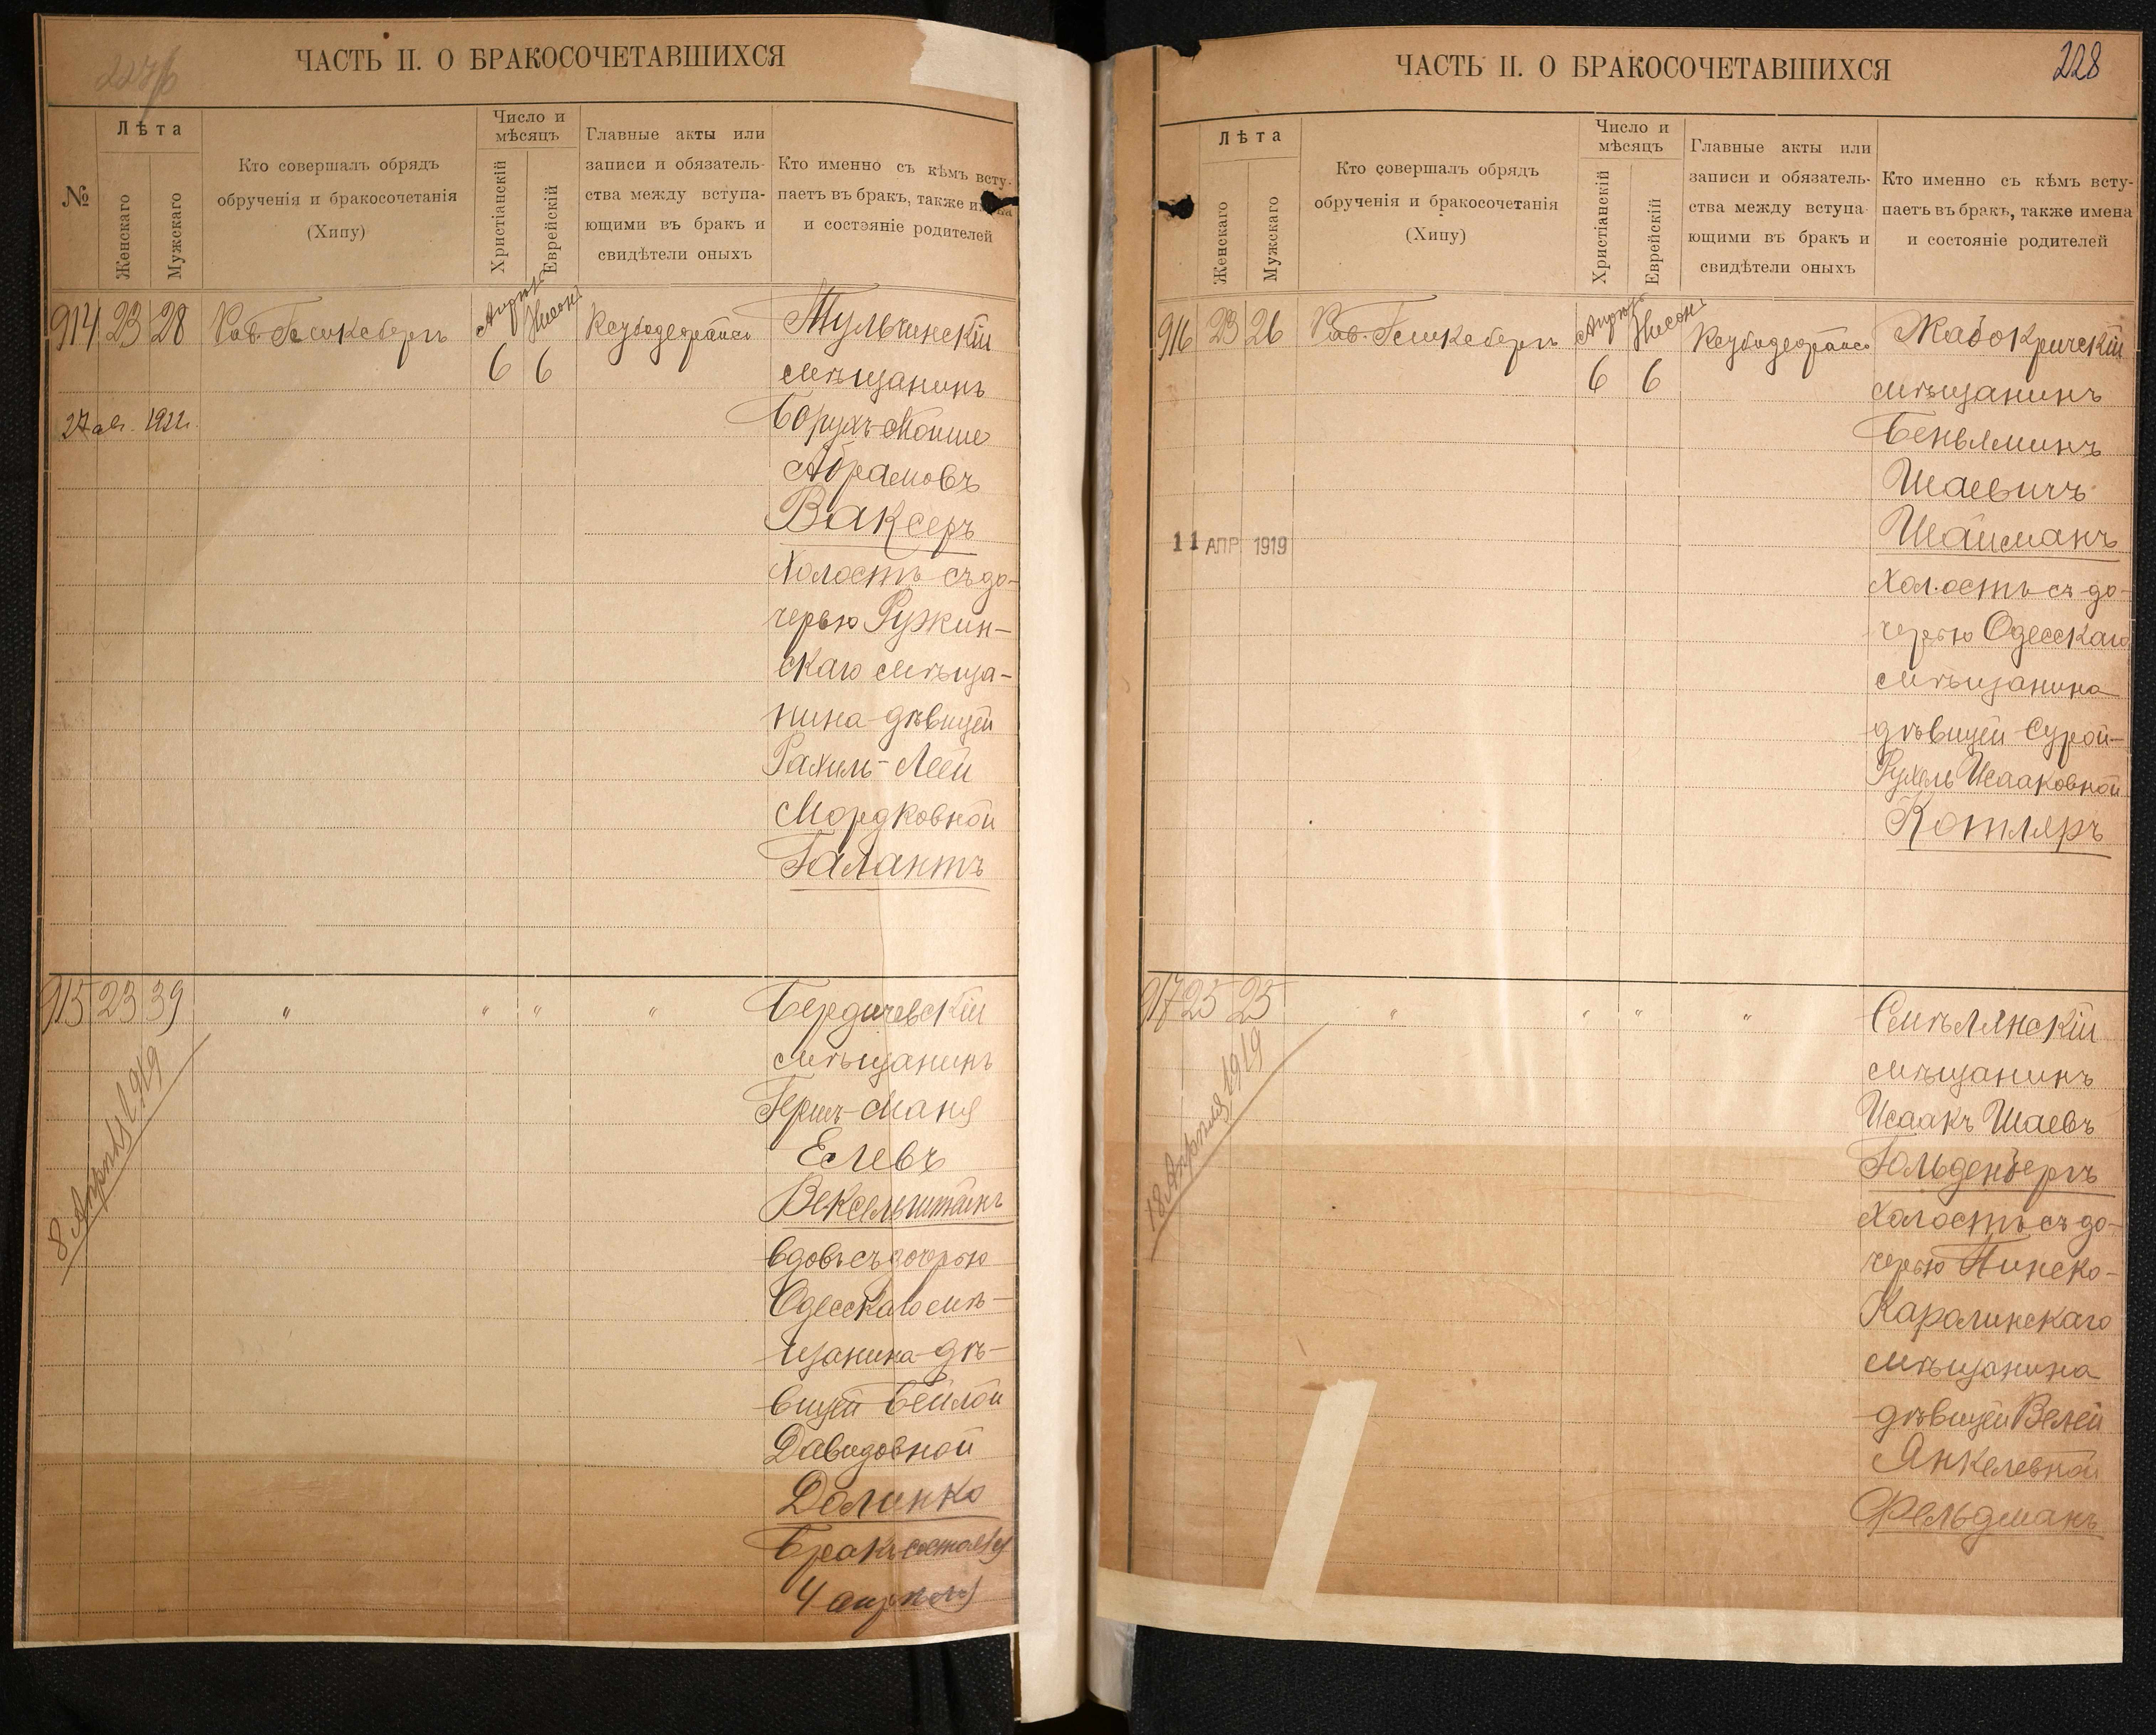 227/б
ЧАСТЬ II. О БРАКОСОЧЕТАВШИХСЯ
№
Лѣта
Женскаго
Мужскаго
Кто совершалъ обрядъ
обрученія и бракосочетанія
(Хипу)
Число и
мѣсяцъ
Христіанскій
Еврейскій
Главные акты или
записи и обязатель-
ства между вступа-
ющими въ бракъ и
свидѣтели оныхъ
Кто именно съ кѣмъ всту-
паетъ въ бракъ, также имена
и состояніе родителей
914 23 28 Рав.
Апрѣль Нисонъ
6 6
Тульчинскій
мѣщанинъ
Борухъ-Мойше
Абрамовъ
Ваксеръ
холостъ съ до-
черью Ружин-
скаго мѣща-
нина-дѣвицей
Рахиль-Леей
Мордковной
Галантъ
915 23 39 " " " "
8 Апрѣля 1919
Бердичевскій
мѣщанинъ
Герш-Маня
Елевъ
Вексельштейнъ
вдовъ съ дочерью
Одесскаго мѣ-
щанина-дѣ-
вицей Бейлой
Давидовной
Долинко
Бракъ состоялся
4 апрѣля
228
ЧАСТЬ II. О БРАКОСОЧЕТАВШИХСЯ
Лѣта
Женскаго
Мужскаго
Кто совершалъ обрядъ
обрученія и бракосочетанія
(Хипу)
Число и
мѣсяцъ
Христіанскій
Еврейскій
Главные акты или
записи и обязатель-
ства между вступа-
ющими въ бракъ и
свидѣтели оныхъ
Кто именно съ кѣмъ всту-
паетъ въ бракъ, также имена
и состояніе родителей
916 23 26 Рав.
Апрѣль Нисонъ
6 6
11 АПР 1919
Жабокричскій
мѣщанинъ
Беньяминъ
Шаевичъ
Шайманъ
холостъ съ до-
черью Одесскаго
мѣщанина
дѣвицей Сурой-
Рухель Исааковной
Котляръ
917 25 25 " " " "
18 Апрѣля 1919
Смѣлянскій
мѣщанинъ
Исаакъ Шаевъ
Гольденбергъ
холостъ съ до-
черью Пинско-
Каролинскаго
мѣщанина
дѣвицей
Янкелевной
Фельдманъ